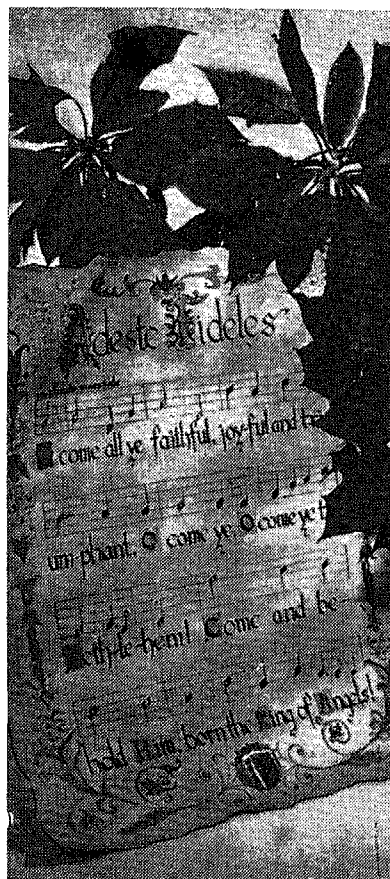 Adeste Fideles
O come all ye faithful, joy-ful and tr
um-phant, O come ye O come ye t
Beth-le-hem! Come and be-
hold Him, born the King of Angels!